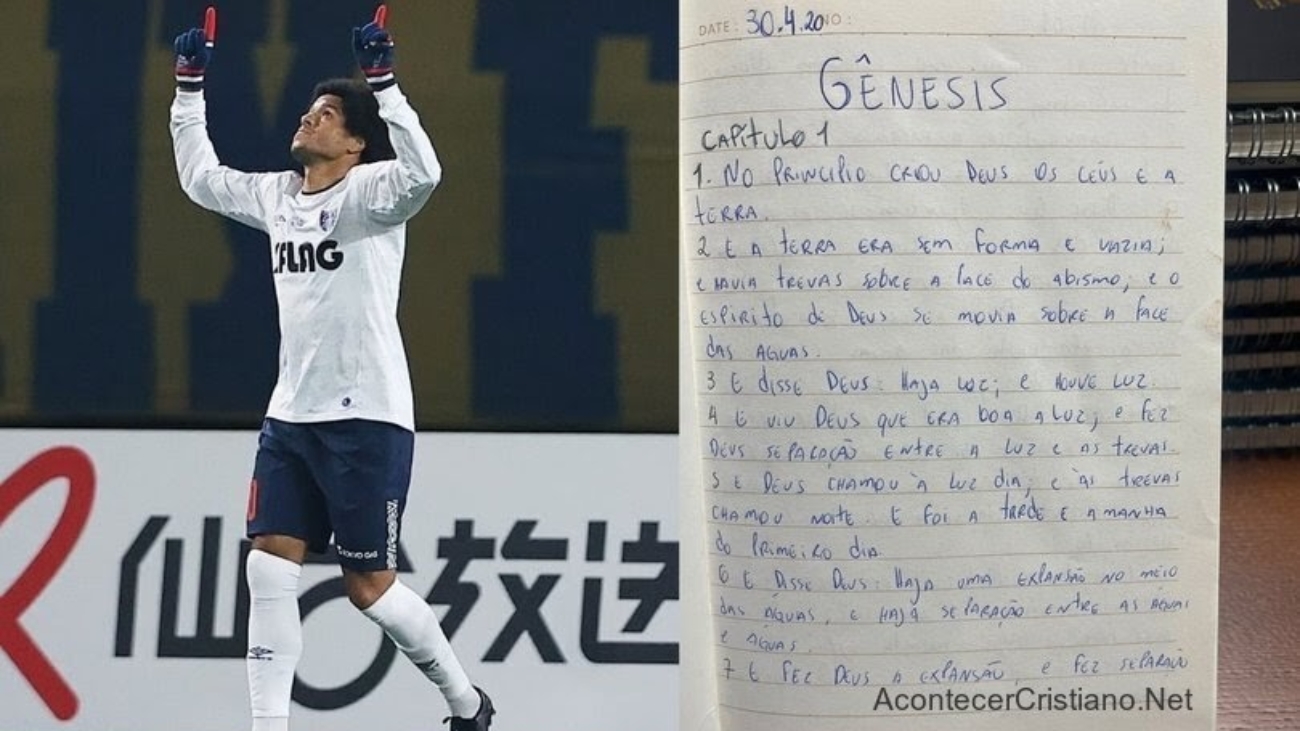 XFLAG
TOKYO GAS
仙台放送
DATE: 30.4.20 NO:
GÊNESIS
CAPÍTULO 1
1. NO PRINCIPIO CRIOU DEUS OS CÉUS E A
TERRA.
2 E A TERRA ERA SEM FORMA E VAZIA;
E HAVIA TREVAS SOBRE A FACE DO ABISMO; E O
ESPIRITO DE DEUS SE MOVIA SOBRE A FACE
DAS AGUAS.
3 E DISSE DEUS: HAJA LUZ; E HOUVE LUZ.
4 E VIU DEUS QUE ERA BOA A LUZ; E FEZ
DEUS SEPARAÇÃO ENTRE A LUZ E AS TREVAS.
5 E DEUS CHAMOU À LUZ DIA; E ÀS TREVAS
CHAMOU NOITE. E FOI A TARDE E A MANHA
DO PRIMEIRO DIA.
6 E DISSE DEUS: HAJA UMA EXPANSÃO NO MEIO
DAS ÁGUAS, E HAJA SEPARAÇÃO ENTRE AS ÁGUAS
E AGUAS.
7 E FEZ DEUS A EXPANSÃO, E FEZ SEPARAÇÃO
AcontecerCristiano.Net